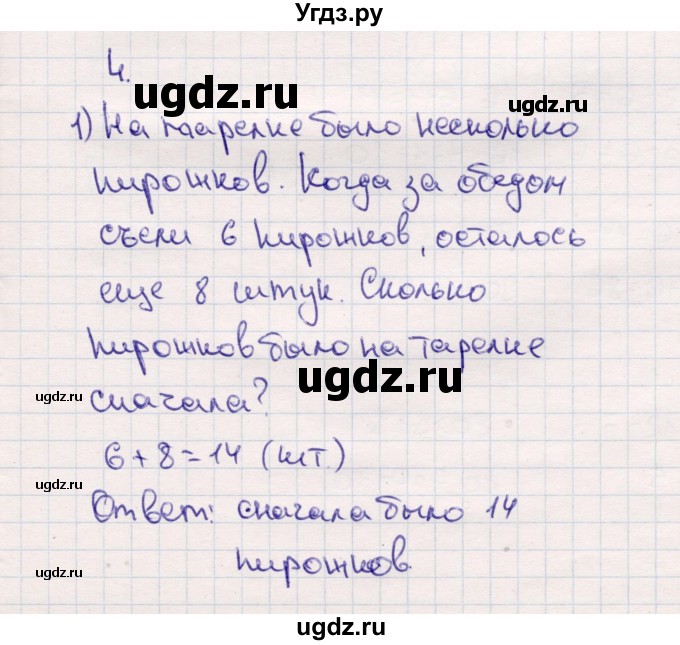 Угдз.ру
4.
ugdz.ru
1) На тарелке было несколько
пирожков. Когда за обедом
съели 6 пирожков, осталось
еще 8 штук. Сколько
пирожков было на тарелке
ugdz.ru
ugdz.ru
сначала?
6+8=14 (шт.)
ugdz.ru
Ответ: сначала было 14
пирожков.
ugdz.ru
ugdz.ru